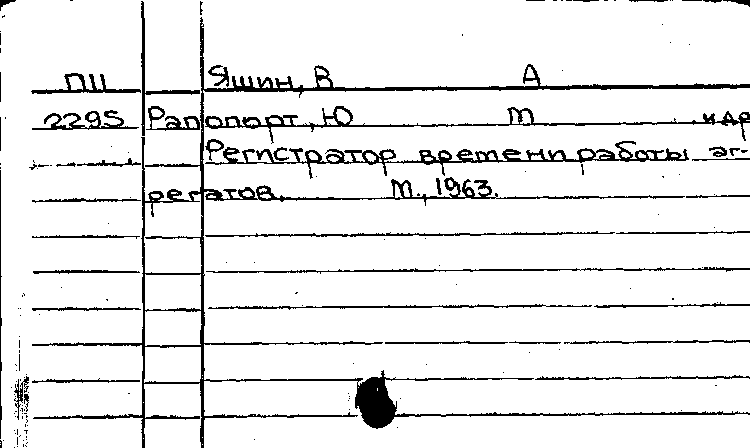 П11 Яшин, В А
2295 Рапопорт, Ю М и др
Регистратор времени работы аг-
регатов. М., 1963.